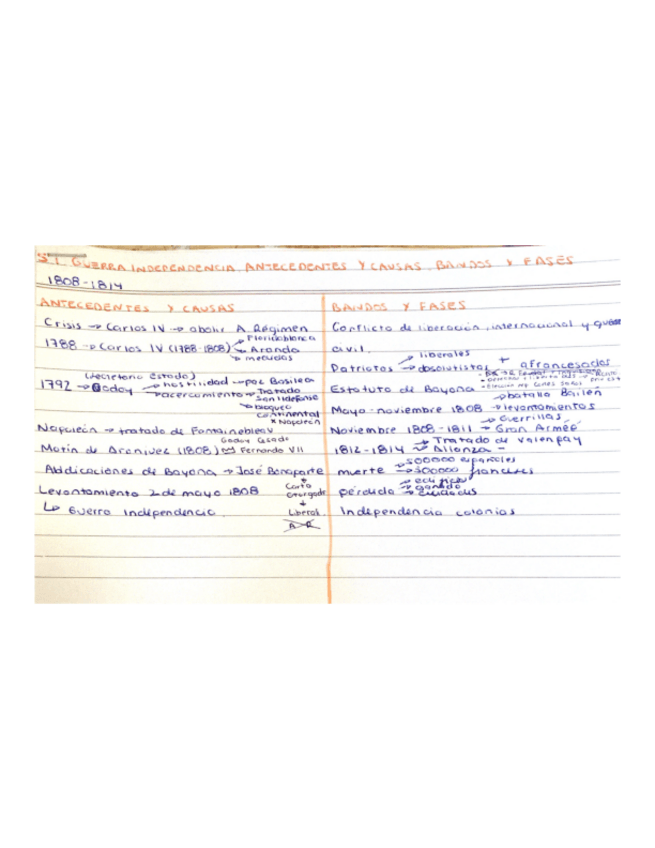 5.1. GUERRA INDEPENDENCIA. ANTECEDENTES Y CAUSAS. BANDOS Y FASES
1808-1814
ANTECEDENTES Y CAUSAS
Crisis → Carlos IV → abolir A. Régimen
1788 → Carlos IV (1788-1808) → Floridablanca
→ Aranda
→ medidas
(Secretario Estado)
1792 → Godoy → hostilidad → paz Basilea
→ acercamiento → Tratado
San Ildefonso
→ bloqueo
Continental
x Napoleón
Napoleón → tratado de Fontainebleau
Motín de Aranjuez (1808) Godoy Cesado
Fernando VII
Abdicaciones de Bayona → José Bonaparte
Levantamiento 2 de mayo 1808
↳ Guerra Independencia
Carta
Otorgada
↓
Liberal
A R
BANDOS Y FASES
Conflicto de liberación, internacional y guerra
civil.
Patriotas → liberales
→ absolutistas + afrancesados
Estatuto de Bayona
→ batalla Bailén
Mayo-noviembre 1808 → levantamientos
→ Guerrillas
Noviembre 1808-1811 → Gran Armée
1812-1814 → Tratado de Valençay
→ Alianza -
muerte → 500000 españoles
→ 300000 franceses
pérdida → edificios
→ ganado
→ ciudades
Independencia colonias